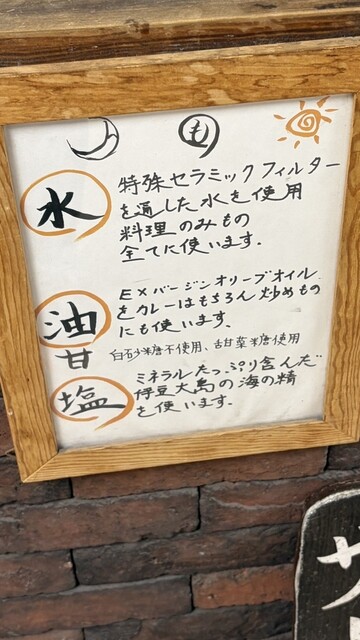 も
水
特殊セラミックフィルター
を通した水を使用
料理のみもの
全てに使います.
油
EXバージンオリーブオイル
をカレーはもちろん炒めもの
にも使います.
甘
白砂糖不使用、甜菜糖使用
塩
ミネラルたっぷり含んだ
伊豆大島の海の精
を使います.